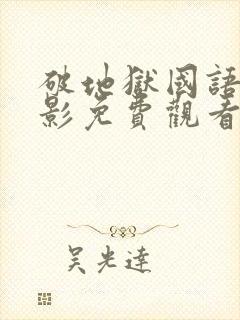 破地獄國語
影免費觀看
吳光達